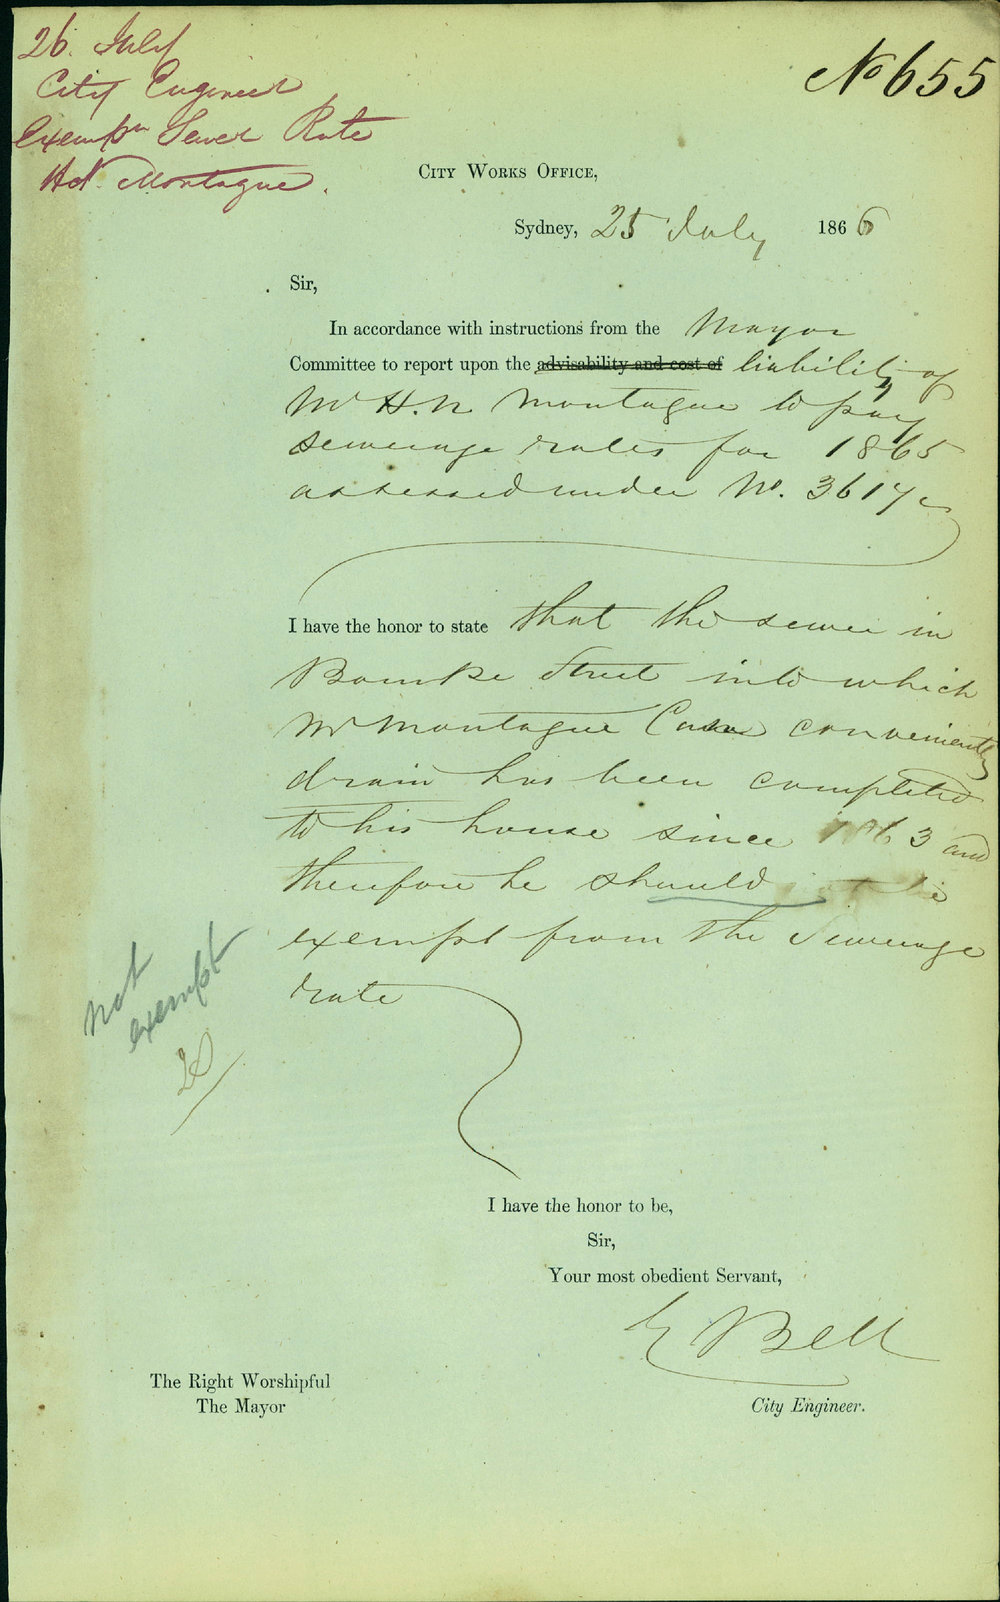 26 July
City Engineer
Exempn Sewer Rate
H N Montague.
No 655
City Works Office,
Sydney, 25 July 1866
Sir,
In accordance with instructions from the Mayor
Committee to report upon the advisability and cost of liability of
Mr H. N. Montague to pay
sewerage rates for 1865
assessed under No. 3617
I have the honor to state that the sewer in
Bourke Street into which
Mr Montague Can conveniently
drain has been completed
to his house since 1863 and
therefore he should not be
exempt from the Sewerage
rate
not
exempt
I have the honor to be,
Sir,
Your most obedient Servant,
E Bell
The Right Worshipful
The Mayor
City Engineer.